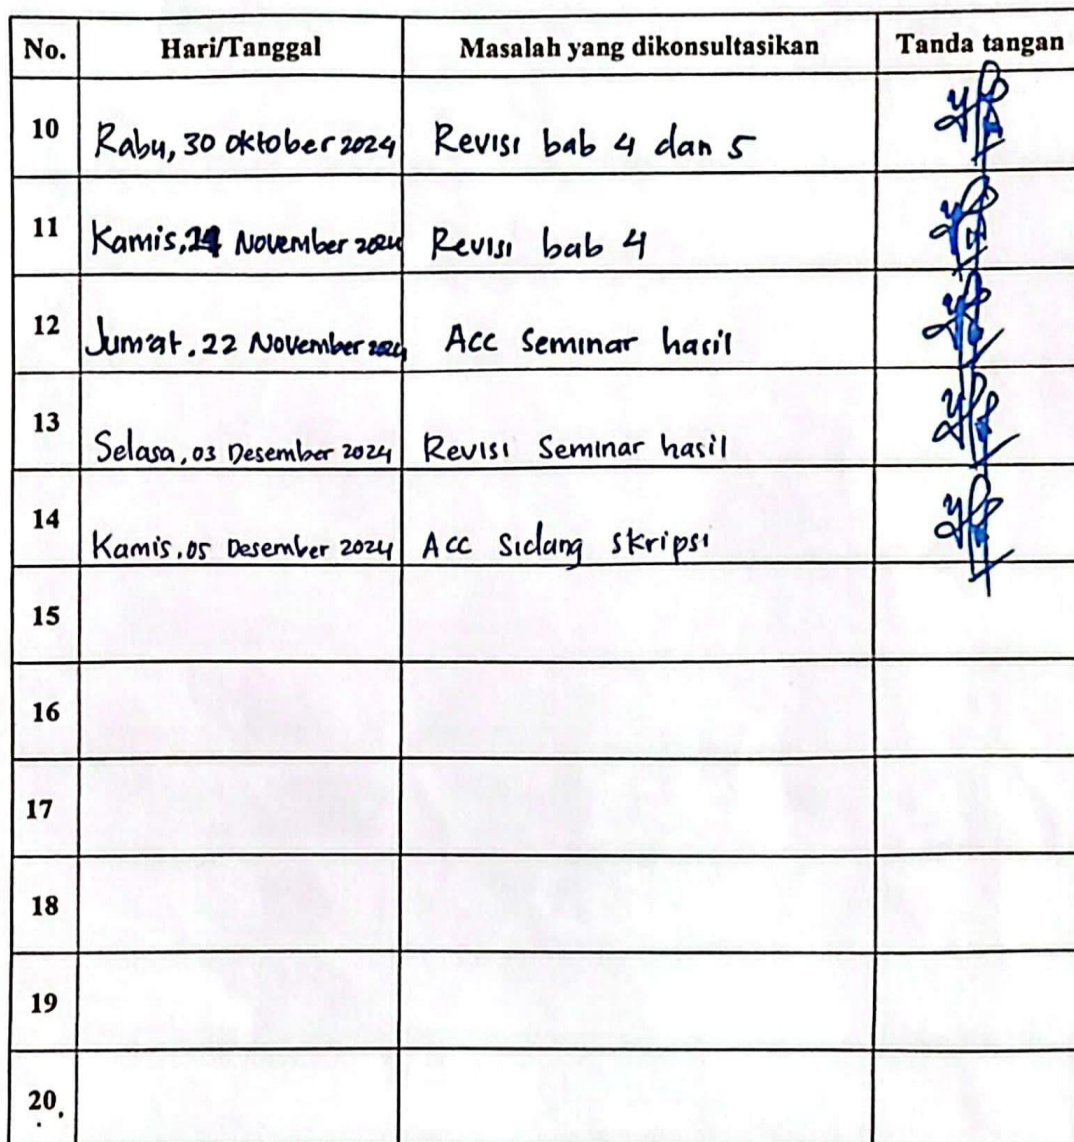 No. Hari/Tanggal Masalah yang dikonsultasikan Tanda tangan
10 Rabu, 30 Oktober 2024 Revisi bab 4 dan 5
11 Kamis, November 2024 Revisi bab 4
12 Jum'at, 22 November 2024 Acc Seminar hasil
13 Selasa, 03 Desember 2024 Revisi Seminar hasil
14 Kamis, 05 Desember 2024 Acc Sidang skripsi
15
16
17
18
19
20.